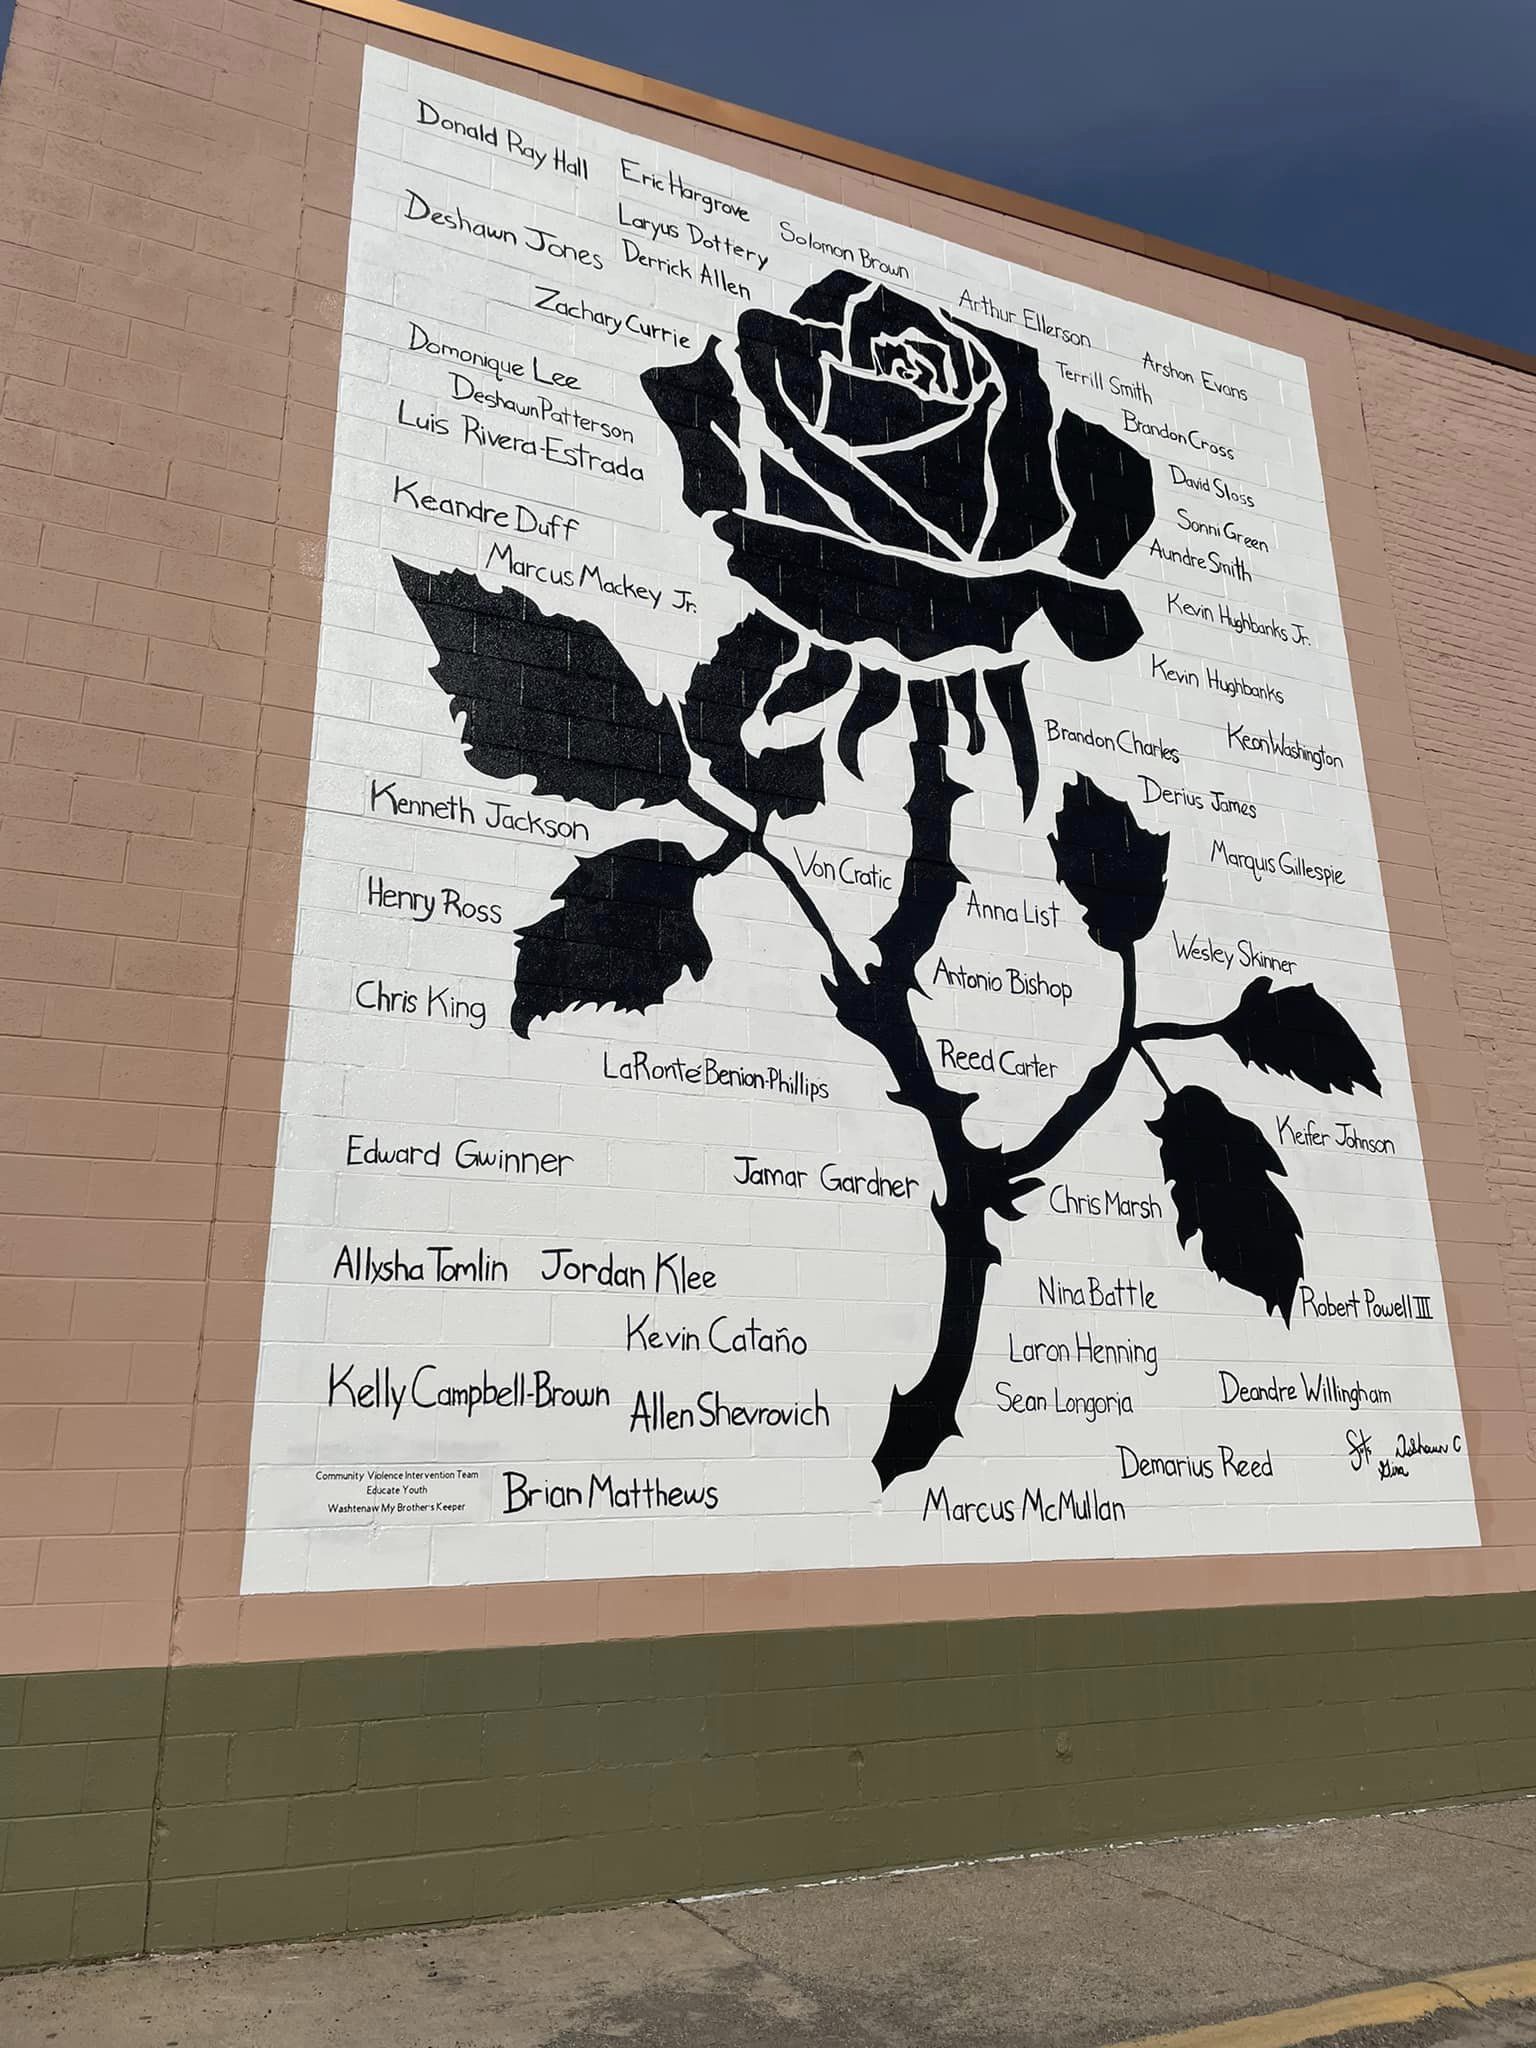 Donald Ray Hall
Eric Hargrove
Laryus Dottery
Solomon Brown
Deshawn Jones
Derrick Allen
Zachary Currie
Arthur Ellerson
Arshon Evans
Domonique Lee
Terrill Smith
Deshawn Patterson
Brandon Cross
Luis Rivera-Estrada
David Sloss
Keandre Duff
Sonni Green
Aundre Smith
Marcus Mackey Jr.
Kevin Hughbanks Jr.
Kevin Hughbanks
Brandon Charles
Keon Washington
Kenneth Jackson
Derius James
Von Cratic
Marquis Gillespie
Henry Ross
Anna List
Wesley Skinner
Antonio Bishop
Chris King
LaRonté Benion-Phillips
Reed Carter
Keifer Johnson
Edward Gwinner
Jamar Gardner
Chris Marsh
Allysha Tomlin
Jordan Klee
Nina Battle
Robert Powell III
Kevin Cataño
Laron Henning
Kelly Campbell-Brown
Allen Shevrovich
Sean Longoria
Deandre Willingham
Demarius Reed
Community Violence Intervention Team
Educate Youth
Washtenaw My Brother's Keeper
Brian Matthews
Marcus McMullan